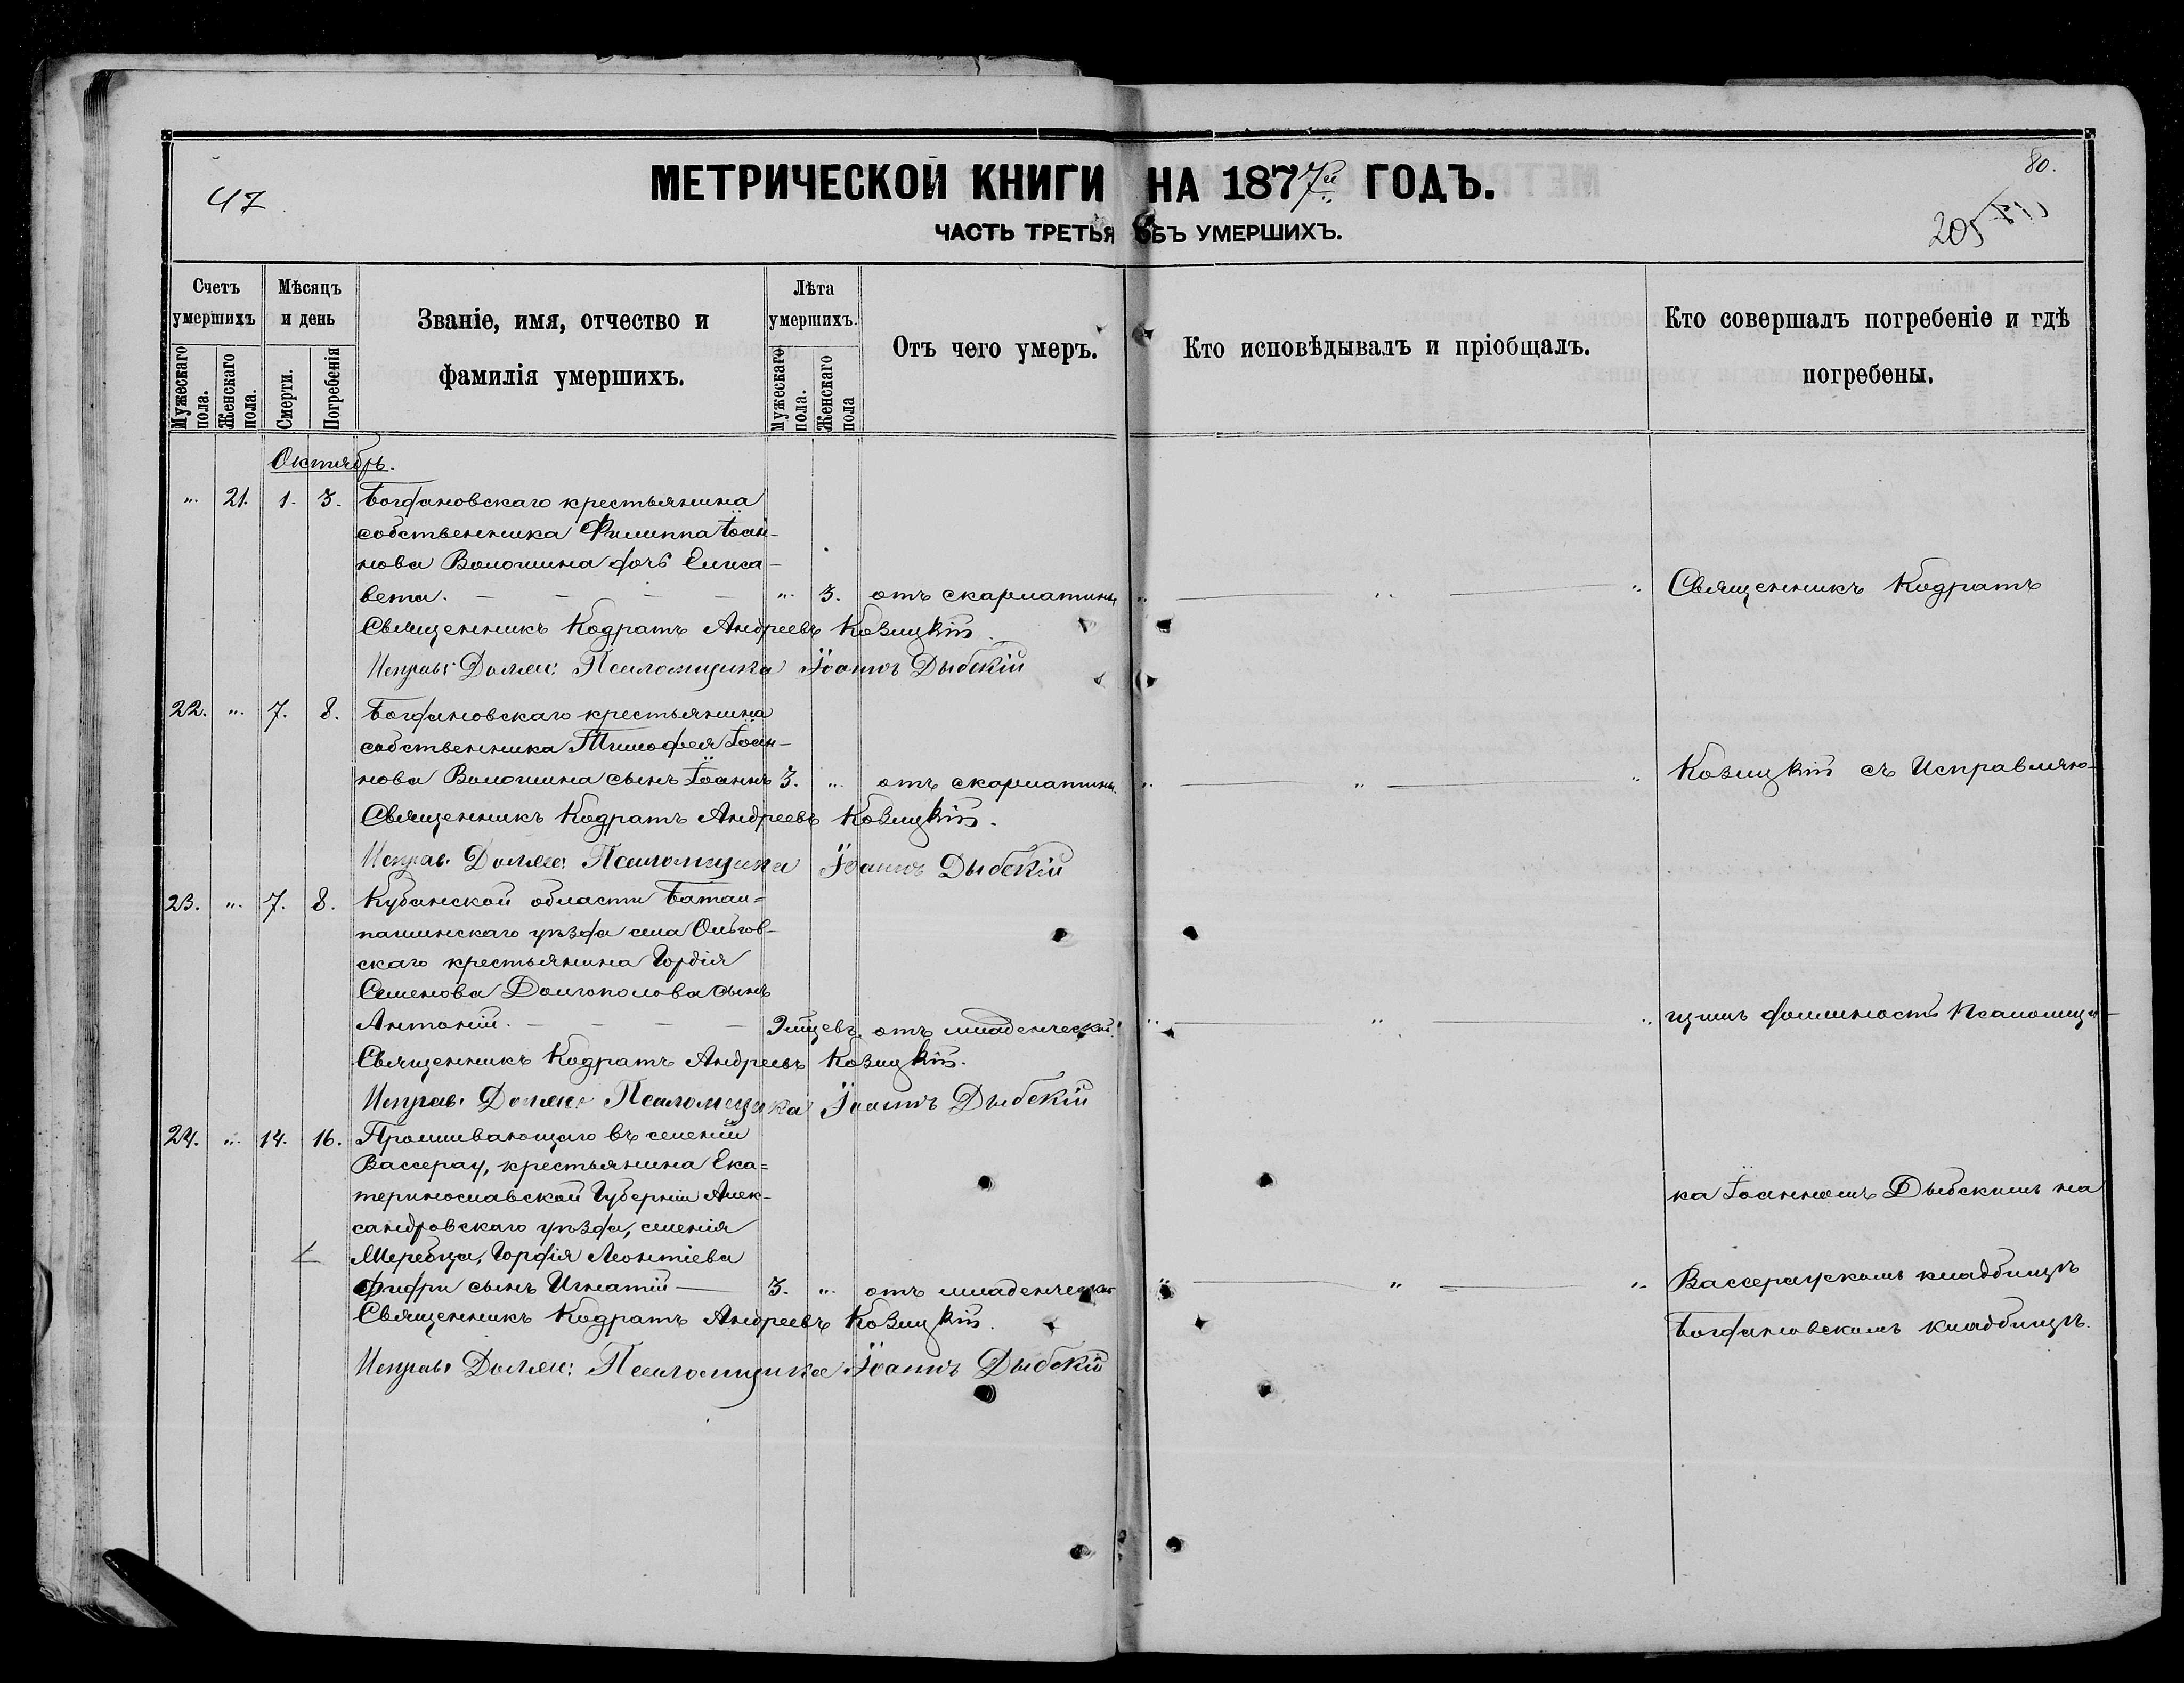 47
МЕТРИЧЕСКОЙ КНИГИ НА 1877й ГОДЪ.
80.
205
ЧАСТЬ ТРЕТЬЯ ОБЪ УМЕРШИХЪ.
Счетъ умершихъ
Мужескаго пола.
Женскаго пола.
Мѣсяцъ и день
Смерти.
Погребенія
Званіе, имя, отчество и
фамилія умершихъ.
Лѣта умершихъ.
Мужескаго пола.
Женскаго пола
Отъ чего умеръ.
Кто исповѣдывалъ и пріобщалъ.
Кто совершалъ погребеніе и гдѣ
погребены.
Октябрь.
„ 21. 1. 3. Богдановскаго крестьянина
собственника Филиппа Іоан-
нова Волошина дочь Елиса-
вета. — — — — „ 3. отъ скарлатины „ — „ — „ Священникъ Кодратъ
Священникъ Кодратъ Андреевъ Козицкій.
Исправ: Должн: Псаломщика Іоаннъ Дыбскій
22. „ 7. 8. Богдановскаго крестьянина
собственника Тимофея Іоан-
нова Волошина сынъ Іоаннъ 3. „ отъ скарлатины. „ — „ — „ Козицкій съ Исправляю-
Священникъ Кодратъ Андреевъ Козицкій.
Исправ. Должн: Псаломщика Іоаннъ Дыбскій
23. „ 7. 8. Кубанской области Батал-
пашинскаго уѣзда села Ольгов-
скаго крестьянина Гордія
Семенова Долгополова сынъ
Антоній. — — — — отъ младенческ. „ — „ — „ щимъ должность Псаломщи-
Священникъ Кодратъ Андреевъ Козицкій.
Исправ. Должн: Псаломщика Іоаннъ Дыбскій
24. „ 14. 16. Проживающаго въ селеніи
Вассерау, крестьянина Ека-
теринославской Губерніи Алек-
ка Іоанномъ Дыбскимъ на
сандровскаго уѣзда, селенія
Жеребца, Гордія Леонтіева
сынъ Игнатій — 3. „ отъ младенческ. „ — „ — „ Вассераускомъ кладбищѣ
Священникъ Кодратъ Андреевъ Козицкій.
Богдановскомъ кладбищѣ.
Исправ: Должн: Псаломщика Іоаннъ Дыбскій